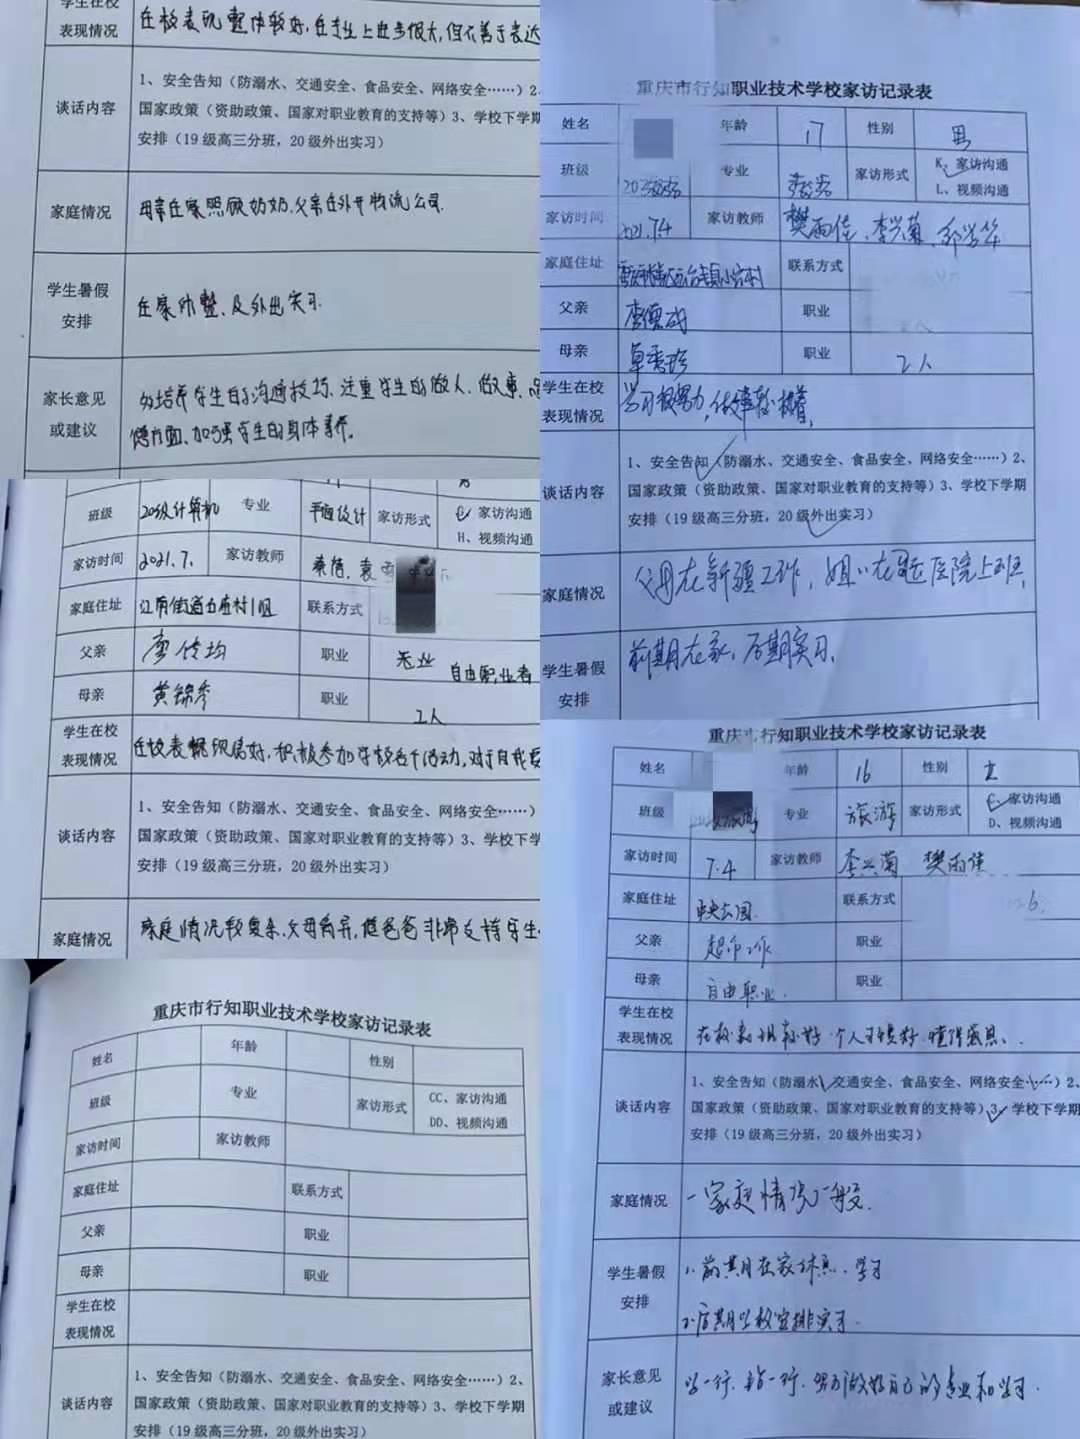 学生在校
表现情况
在校表现整体较好,在专业上进步很大,但不善于表达
谈话内容
1、安全告知（防溺水、交通安全、食品安全、网络安全……）2、
国家政策（资助政策、国家对职业教育的支持等）3、学校下学期
安排（19级高三分班，20级外出实习）
家庭情况
母亲在家照顾奶奶,父亲在外开物流公司.
学生暑假
安排
在家 及外出实习.
家长意见
或建议
多培养学生的沟通技巧、注重学生的做人、做事、
德方面、加强学生的身体素养。
班级 20级计算机 专业 平面设计 家访形式 家访沟通
H、视频沟通
家访时间 2021.7. 家访教师 秦 袁
家庭住址 江南街道 村1组 联系方式
父亲 廖传均 职业 无业 自由职业者
母亲 黄锦秀 职业 工人
学生在校
表现情况
在校表现 良好,积极参加学校各个活动,对于自我
谈话内容
1、安全告知（防溺水、交通安全、食品安全、网络安全……）
国家政策（资助政策、国家对职业教育的支持等）3、学
安排（19级高三分班，20级外出实习）
家庭情况
家庭情况较复杂,父母离异,继爸爸非常支持学生
重庆市行知职业技术学校家访记录表
姓名 年龄 性别
班级 专业 家访形式 CC、家访沟通
DD、视频沟通
家访时间 家访教师
家庭住址 联系方式
父亲 职业
母亲 职业
学生在校
表现情况
谈话内容
1、安全告知（防溺水、交通安全、食品安全、网络安全……）2、
国家政策（资助政策、国家对职业教育的支持等）3、学校下学期
安排（19级高三分班，20级外出实习）
重庆市行知职业技术学校家访记录表
姓名 年龄 17 性别 男
班级 专业 家访形式 K、家访沟通
L、视频沟通
家访时间 2021.7.4 家访教师 樊雨佳、李兴菊、邱
家庭住址 联系方式
父亲 李 成 职业
母亲 卓秀珍 职业 工人
学生在校
表现情况
学习较努力,做事较 着,
谈话内容
1、安全告知（防溺水、交通安全、食品安全、网络安全……）2、
国家政策（资助政策、国家对职业教育的支持等）3、学校下学期
安排（19级高三分班，20级外出实习）
家庭情况
父母在新疆工作，姐姐在 医院上班,
学生暑假
安排
前期在家、后期实习、
重庆市行知职业技术学校家访记录表
姓名 年龄 16 性别 女
班级 专业 旅游 家访形式 C、家访沟通
D、视频沟通
家访时间 7.4 家访教师 李兴菊 樊雨佳
家庭住址 中央公园 联系方式 6.
父亲 超市工作 职业
母亲 自由职业. 职业
学生在校
表现情况
在校表现较好 个人习惯好 懂得感恩、
谈话内容
1、安全告知（防溺水、交通安全、食品安全、网络安全……）2、
国家政策（资助政策、国家对职业教育的支持等）3、学校下学期
安排（19级高三分班，20级外出实习）
家庭情况
家庭情况一般.
学生暑假
安排
1、前期在家休息、学习
2、后期学校安排实习.
家长意见
或建议
学一行、 一行、努力做好自己的专业和学习.